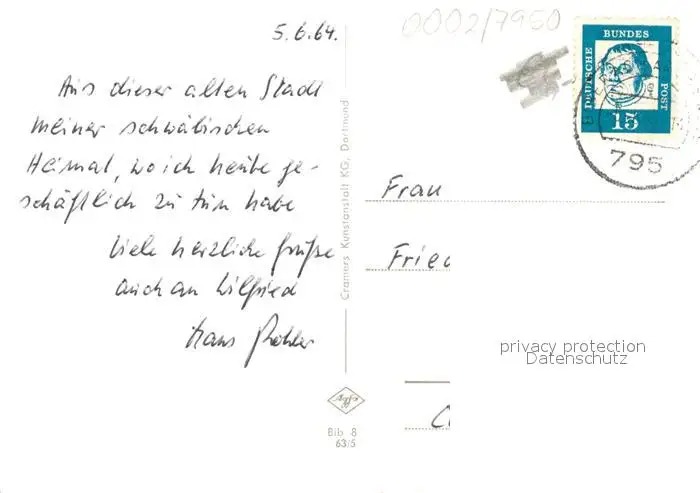 5.6.64.
Aus dieser alten Stadt
meiner schwäbischen
Heimat, wo ich heute ge-
schäftlich zu tun habe
Viele herzliche Grüße
auch an Wilfried
Hans
Cramers Kunstanstalt KG, Dortmund
Bib 8
63/5
0002/7950
DEUTSCHE
BUNDES
POST
15
795
Frau
Fried
privacy protection
Datenschutz